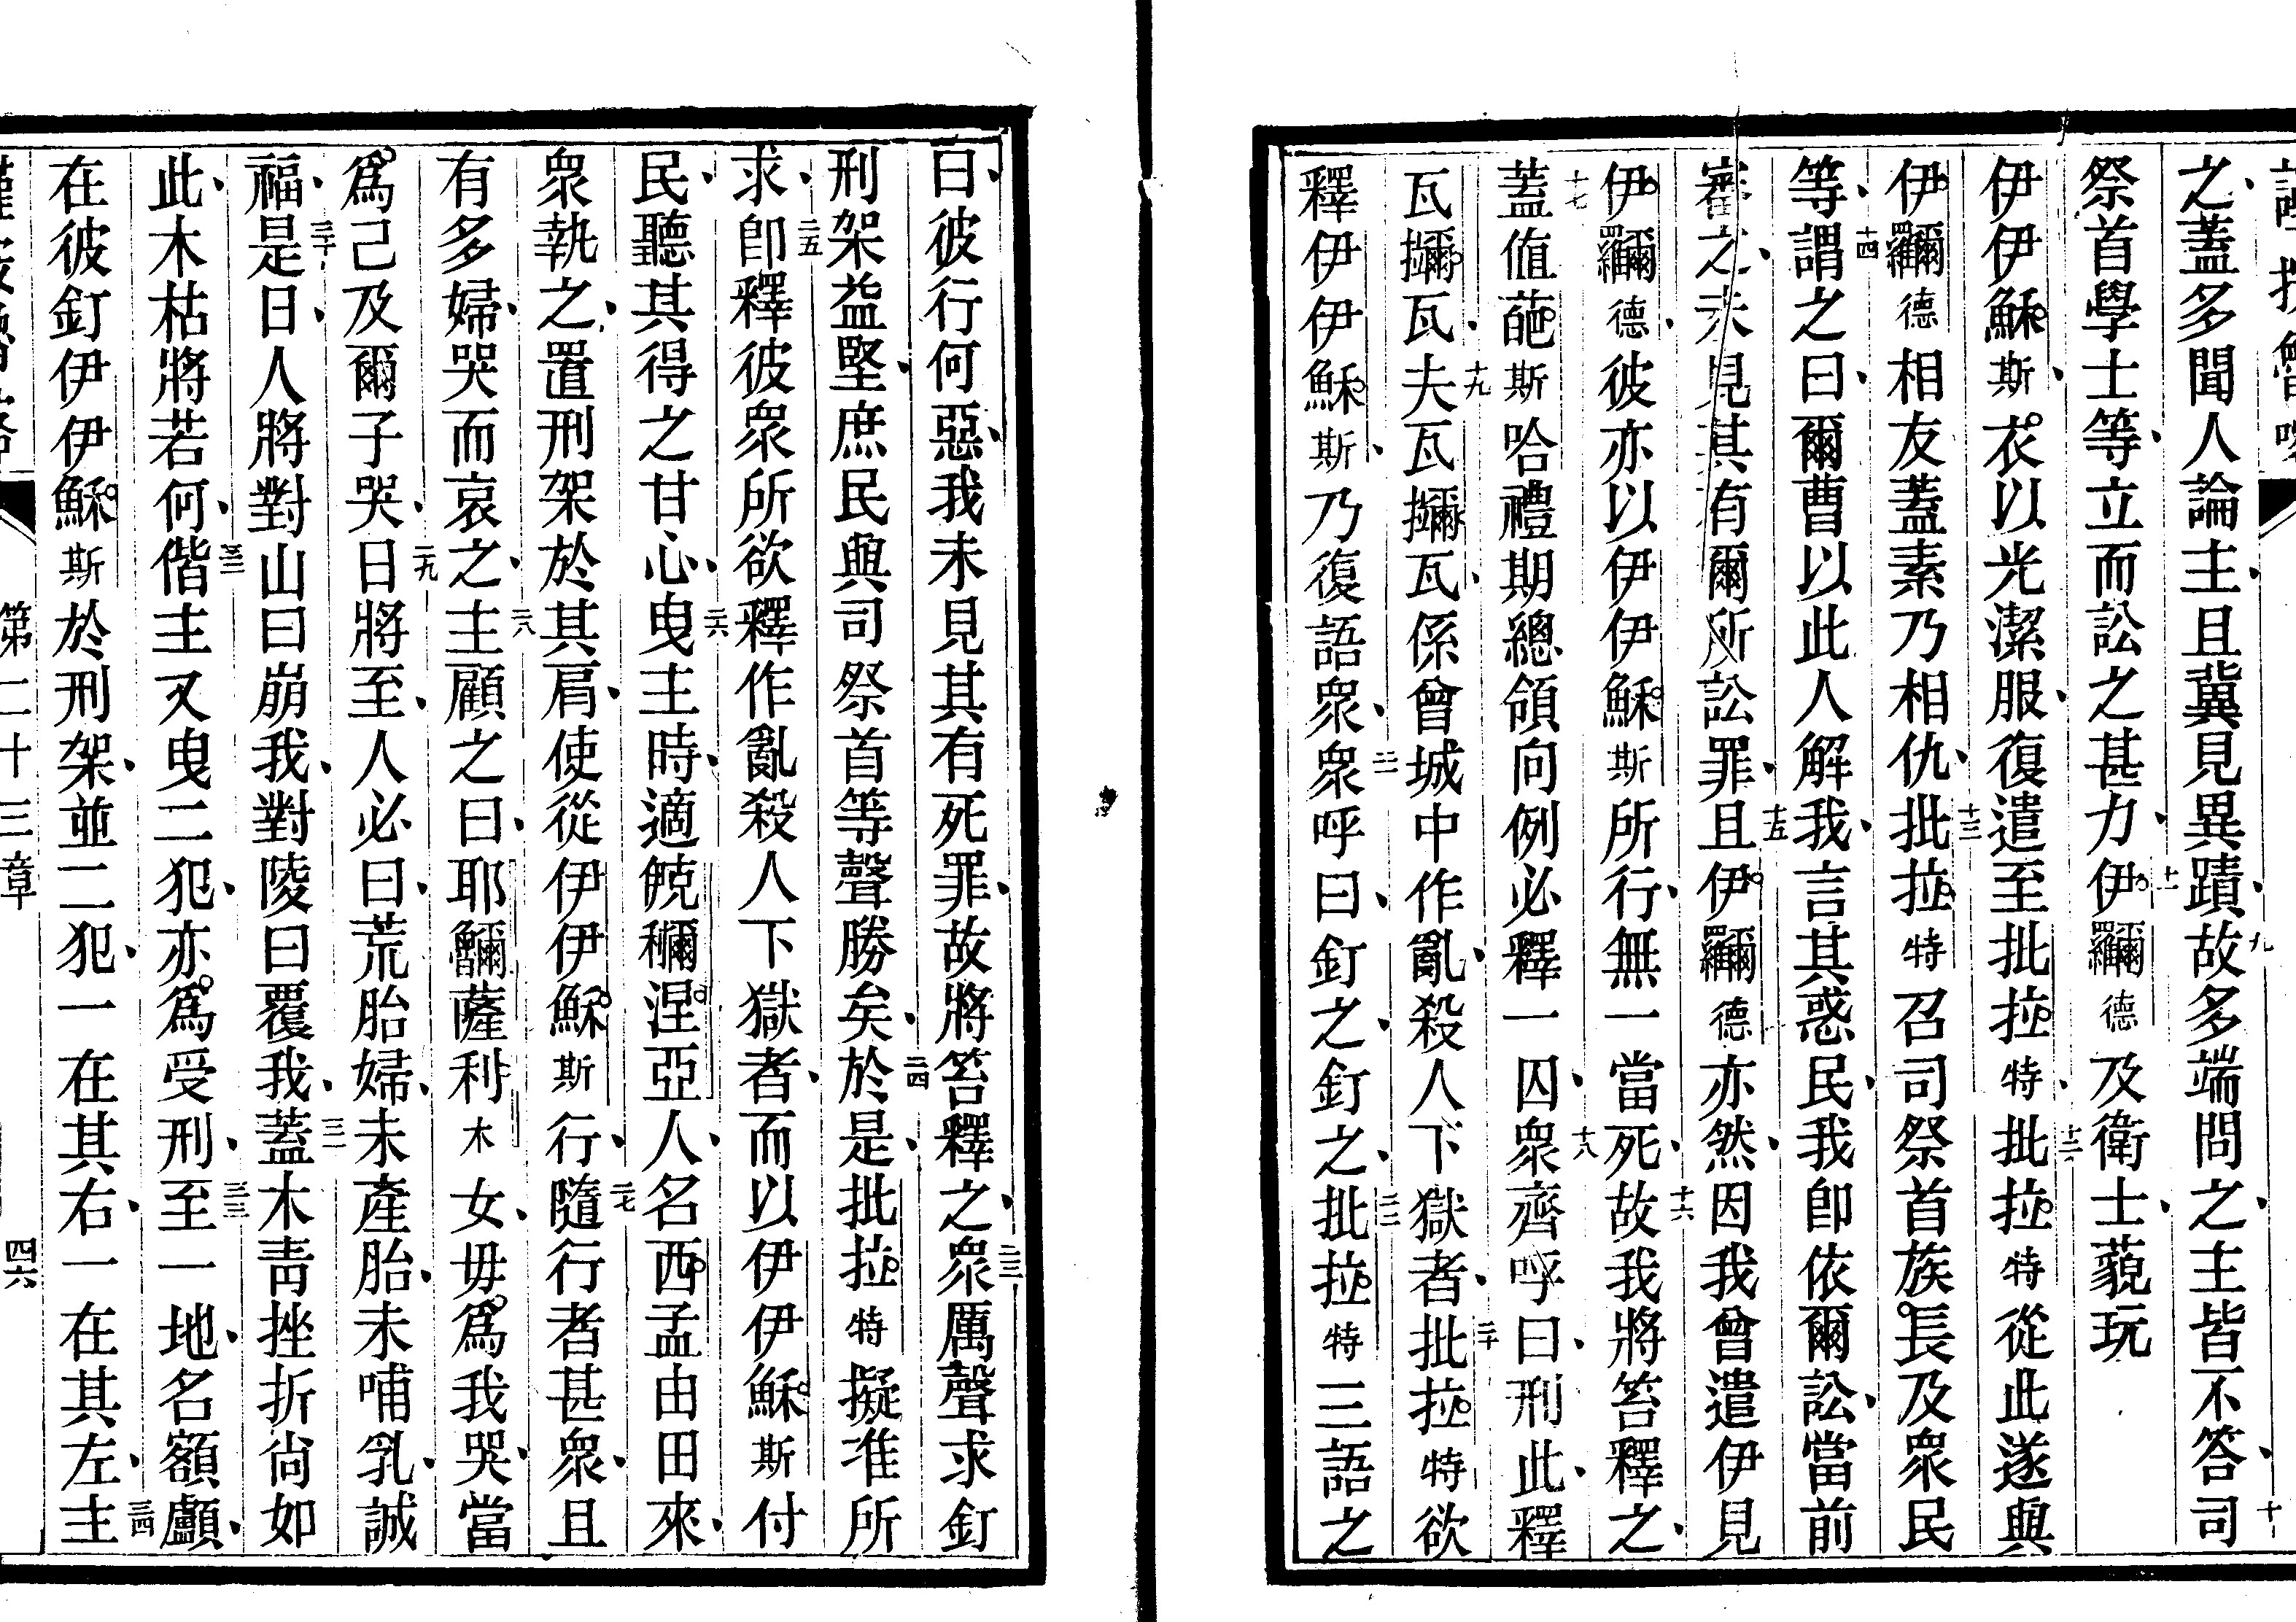 之蓋多聞人論主且冀見異蹟故多端問之主皆不答司
祭首學士等立而訟之甚力伊羅爾德及衛士藐玩
伊伊穌斯衣以光潔服復遣至批拉特批拉特從此遂與
伊羅爾德相友蓋素乃相仇批拉特召司祭首族長及眾民
等謂之曰爾曹以此人解我言其惑民我卽依爾訟當前
審之未見其有爾所訟罪且伊羅爾德亦然因我曾遣伊見
伊羅爾德彼亦以伊伊穌斯所行無一當死故我將笞釋之
蓋值葩斯哈禮期總領向例必釋一囚眾齊呼曰刑此釋
瓦瓦夫瓦瓦係曾城中作亂殺人下獄者批拉特欲
釋伊伊穌斯乃復語眾眾呼曰釘之釘之批拉特三語之
曰彼行何惡我未見其有死罪故將笞釋之眾厲聲求釘
刑架益堅庶民與司祭首等聲勝矣於是批拉特擬准所
求卽釋彼眾所欲釋作亂殺人下獄者而以伊伊穌斯付
民聽其得之甘心曳主時適涅亞人名西孟由田來
眾執之置刑架於其肩使從伊伊穌斯行隨行者甚眾且
有多婦哭而哀之主顧之曰耶薩利木女毋爲我哭當
爲己及爾子哭日將至人必曰荒胎婦未產胎未哺乳誠
福是日人將對山曰崩我對陵曰覆我蓋木靑挫折尙如
此木枯將若何偕主又曳二犯亦爲受刑至一地名額顱
在彼釘伊伊穌斯於刑架並二犯一在其右一在其左主
第二十三章
四六